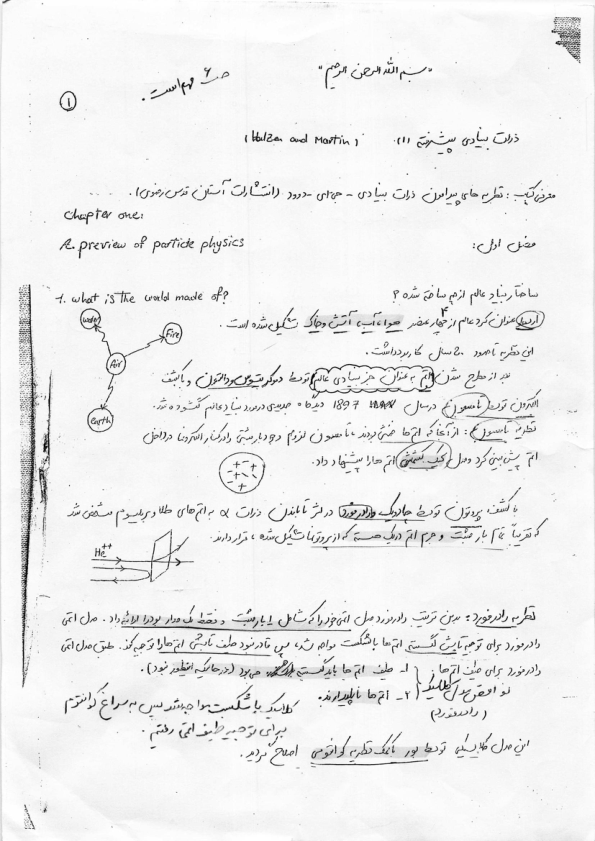 "بسم الله الرحمن الرحیم"
مهم است.
1
ذرات بنیادی پیشرفته (1). (Halzen and Martin)
معرفی کتاب: نظریه های پیرامون ذرات بنیادی - درود (انتشارات آستان قدس رضوی).
Chapter one:
A. preview of particle physics
فصل اول:
1. what is the world made of?
ساختار بنیاد عالم از چه ساخته شده؟
ارسطو عنوان کرد عالم از چهار عنصر هوا، آب، آتش و خاک تشکیل شده است.
water
Fire
Air
earth
این نظریه تا حدود 20 سال کاربرد داشت.
بعد از مطرح شدن اتم به عنوان جزء بنیادی عالم توسط دموکریتوس و دالتون و با کشف
الکترون توسط تامسون در سال 1897 دیدگاه جدیدی در مورد بنیاد عالم گشوده شد.
نظریه تامسون: از آنجا که اتم ها خنثی بودند، تامسون لزوم وجود بار مثبتی را در کنار الکترونها در داخل
اتم پیش بینی کرد و مدل کیک کشمشی اتم ها را پیشنهاد داد.
+ - + - + - +
با کشف پروتون توسط چادویک و رادرفورد در اثر تاباندن ذرات α بر اتم های طلا و مشخص شد
که تقریباً تمام بار مثبت و جرم اتم در یک هسته که از پروتونها تشکیل شده، قرار دارند.
He++
نظریه رادرفورد: بدین ترتیب رادرفورد مدل اتمی خود را که شامل بار مثبت و فقط یک مدار بود را ارائه داد. مدل اتمی
رادرفورد برای توجیه تابش گسسته اتم ها با شکست مواجه شد، یعنی قادر نبود طیف تابشی اتم ها را توجیه کند. طبق مدل اتمی
رادرفورد برای طیف اتم ها: 1- طیف اتم ها باید گسسته می بود (در حالیکه اینطور نبود).
2- اتم ها ناپایدارند.
(رادرفورد)
کلاسیک با شکست مواجه شد پس به سراغ کوانتوم
برای توجیه طیف اتمی رفتیم.
این مدل کلاسیکی توسط بور با کمک نظریه کوانتومی اصلاح گردید.